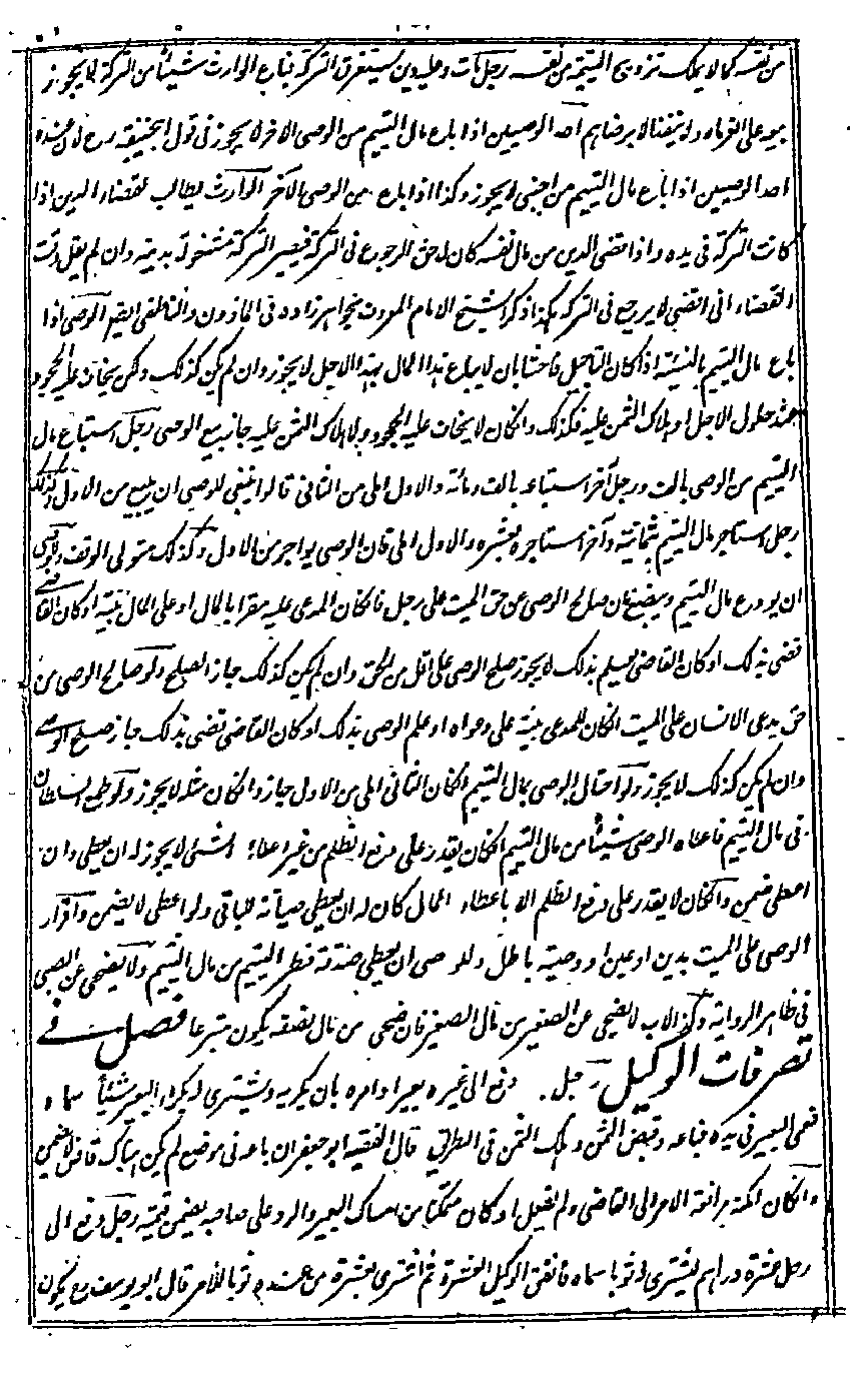 من نفسه كما لا يملك تزويج اليتيمة من نفسه رجل مات وعليه دين يستغرق التركة فباع الوارث شيئا من التركة لا يجوز
بيعه على الغرماء ولا ينفذ الا برضاهم احد الوصيين اذا باع مال اليتيم من الوصى الاخر لا يجوز فى قول ابيحنيفة رح لان عنده
احد الوصيين اذا باع مال اليتيم من اجنبى لا يجوز وكذا اذا باع من الوصى الآخر الوارث يطالب بقضاء الدين اذا
كانت التركة فى يده واذا قضى الدين من مال نفسه كان له حق الرجوع فى التركة فيصير التركة مشغولة بدينه وان لم يقل وقت
القضاء انى اقضى لا يرجع فى التركة هكذا ذكر الشيخ الامام المعروف بخواهرزاده فى الماذون والناطفى القيم الوصى اذا
باع مال اليتيم بالنسيئة اذا كان التاجيل فاحشا بان لا يباع هذا المال بهذا الاجل لا يجوز وان لم يكن كذلك ولكن يخاف عليه الجحود
عند حلول الاجل او هلاك الثمن عليه فكذلك وانكان لا يخاف عليه الجحود ولا هلاك الثمن عليه جاز بيع الوصى رجل استباع مال
اليتيم من الوصى بالف ورجل آخر استباعه بالف ومائة والاول املى من الثانى قالوا ينبغى للوصى ان يبيع من الاول وكذلك
رجل استاجر مال اليتيم بثمانية وآخر استاجره بعشرة والاول املى فان الوصى يواجر من الاول وكذلك متولى الوقف وللوصى
ان يودع مال اليتيم ويبضع فان صالح الوصى عن حق الميت على رجل فانكان المدعى عليه مقرا بالمال او على المال بينة او كان القاضى
قضى بذلك او كان القاضى يعلم بذلك لا يجوز صلح الوصى على اقل من الحق وان لم يكن كذلك جاز الصلح ولو صالح الوصى من
حق يدعى الانسان على الميت انكان للمدعى بينة على دعواه او علم الوصى بذلك او كان القاضى قضى بذلك جاز صلح الوصى
وان لم يكن كذلك لا يجوز ولو احتال الوصى بمال اليتيم انكان الثانى املى من الاول جاز وانكان مثله لا يجوز ولو طمع السلطان
فى مال اليتيم فاعطاه الوصى شيئا من مال اليتيم انكان يقدر على دفع الظلم من غير اعطاء الشئ لا يجوز له ان يعطى وان
اعطى ضمن وانكان لا يقدر على دفع الظلم الا باعطاء المال كان له ان يعطى صيانة للباقى ولو اعطى لا يضمن واقرار
الوصى على الميت بدين او عين او وصية باطل وللوصى ان يعطى صدقة فطر اليتيم من مال اليتيم ولا يضحى عن الصبى
فى ظاهر الرواية وكذا الاب لا يضحى عن الصغير من مال الصغير فان ضحى من مال نفسه يكون متبرعا فصل فى
تصرفات الوكيل رجل دفع الى غيره بعيرا وامره بان يكريه ويشترى له بكراء البعير شيئا سماه
فعمى البعير فى يده فباعه وقبض الثمن وهلك الثمن فى الطريق قال الفقيه ابو جعفر ان باعه فى موضع لم يكن هناك قاض لا يضمن
وانكان امكنه مرافعة الامر الى القاضى ولم يفعل او كان متمكنا من امساك البعير والرد على صاحبه يضمن قيمته رجل دفع الى
رجل عشرة دراهم ليشترى له ثوبا سماه فانفق الوكيل العشرة ثم اشترى بعشرة من عنده ثوبا للآمر قال ابو يوسف رح يكون